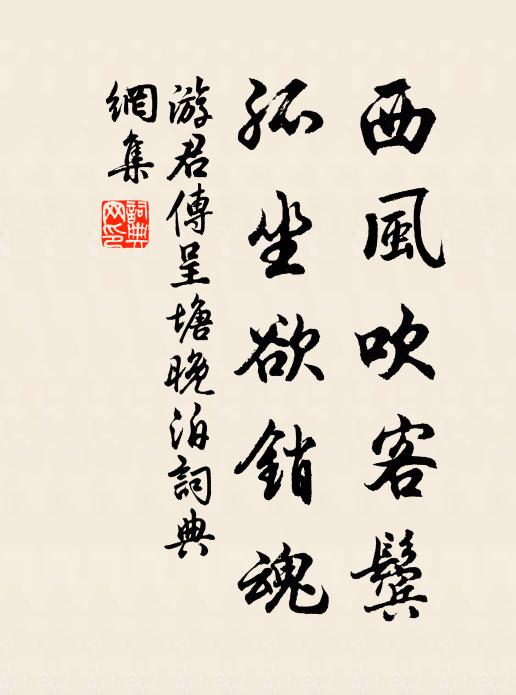 西風吹客鬢
孤坐欲銷魂
游君傳呈塘晚泊詞典
網集
詞典網印